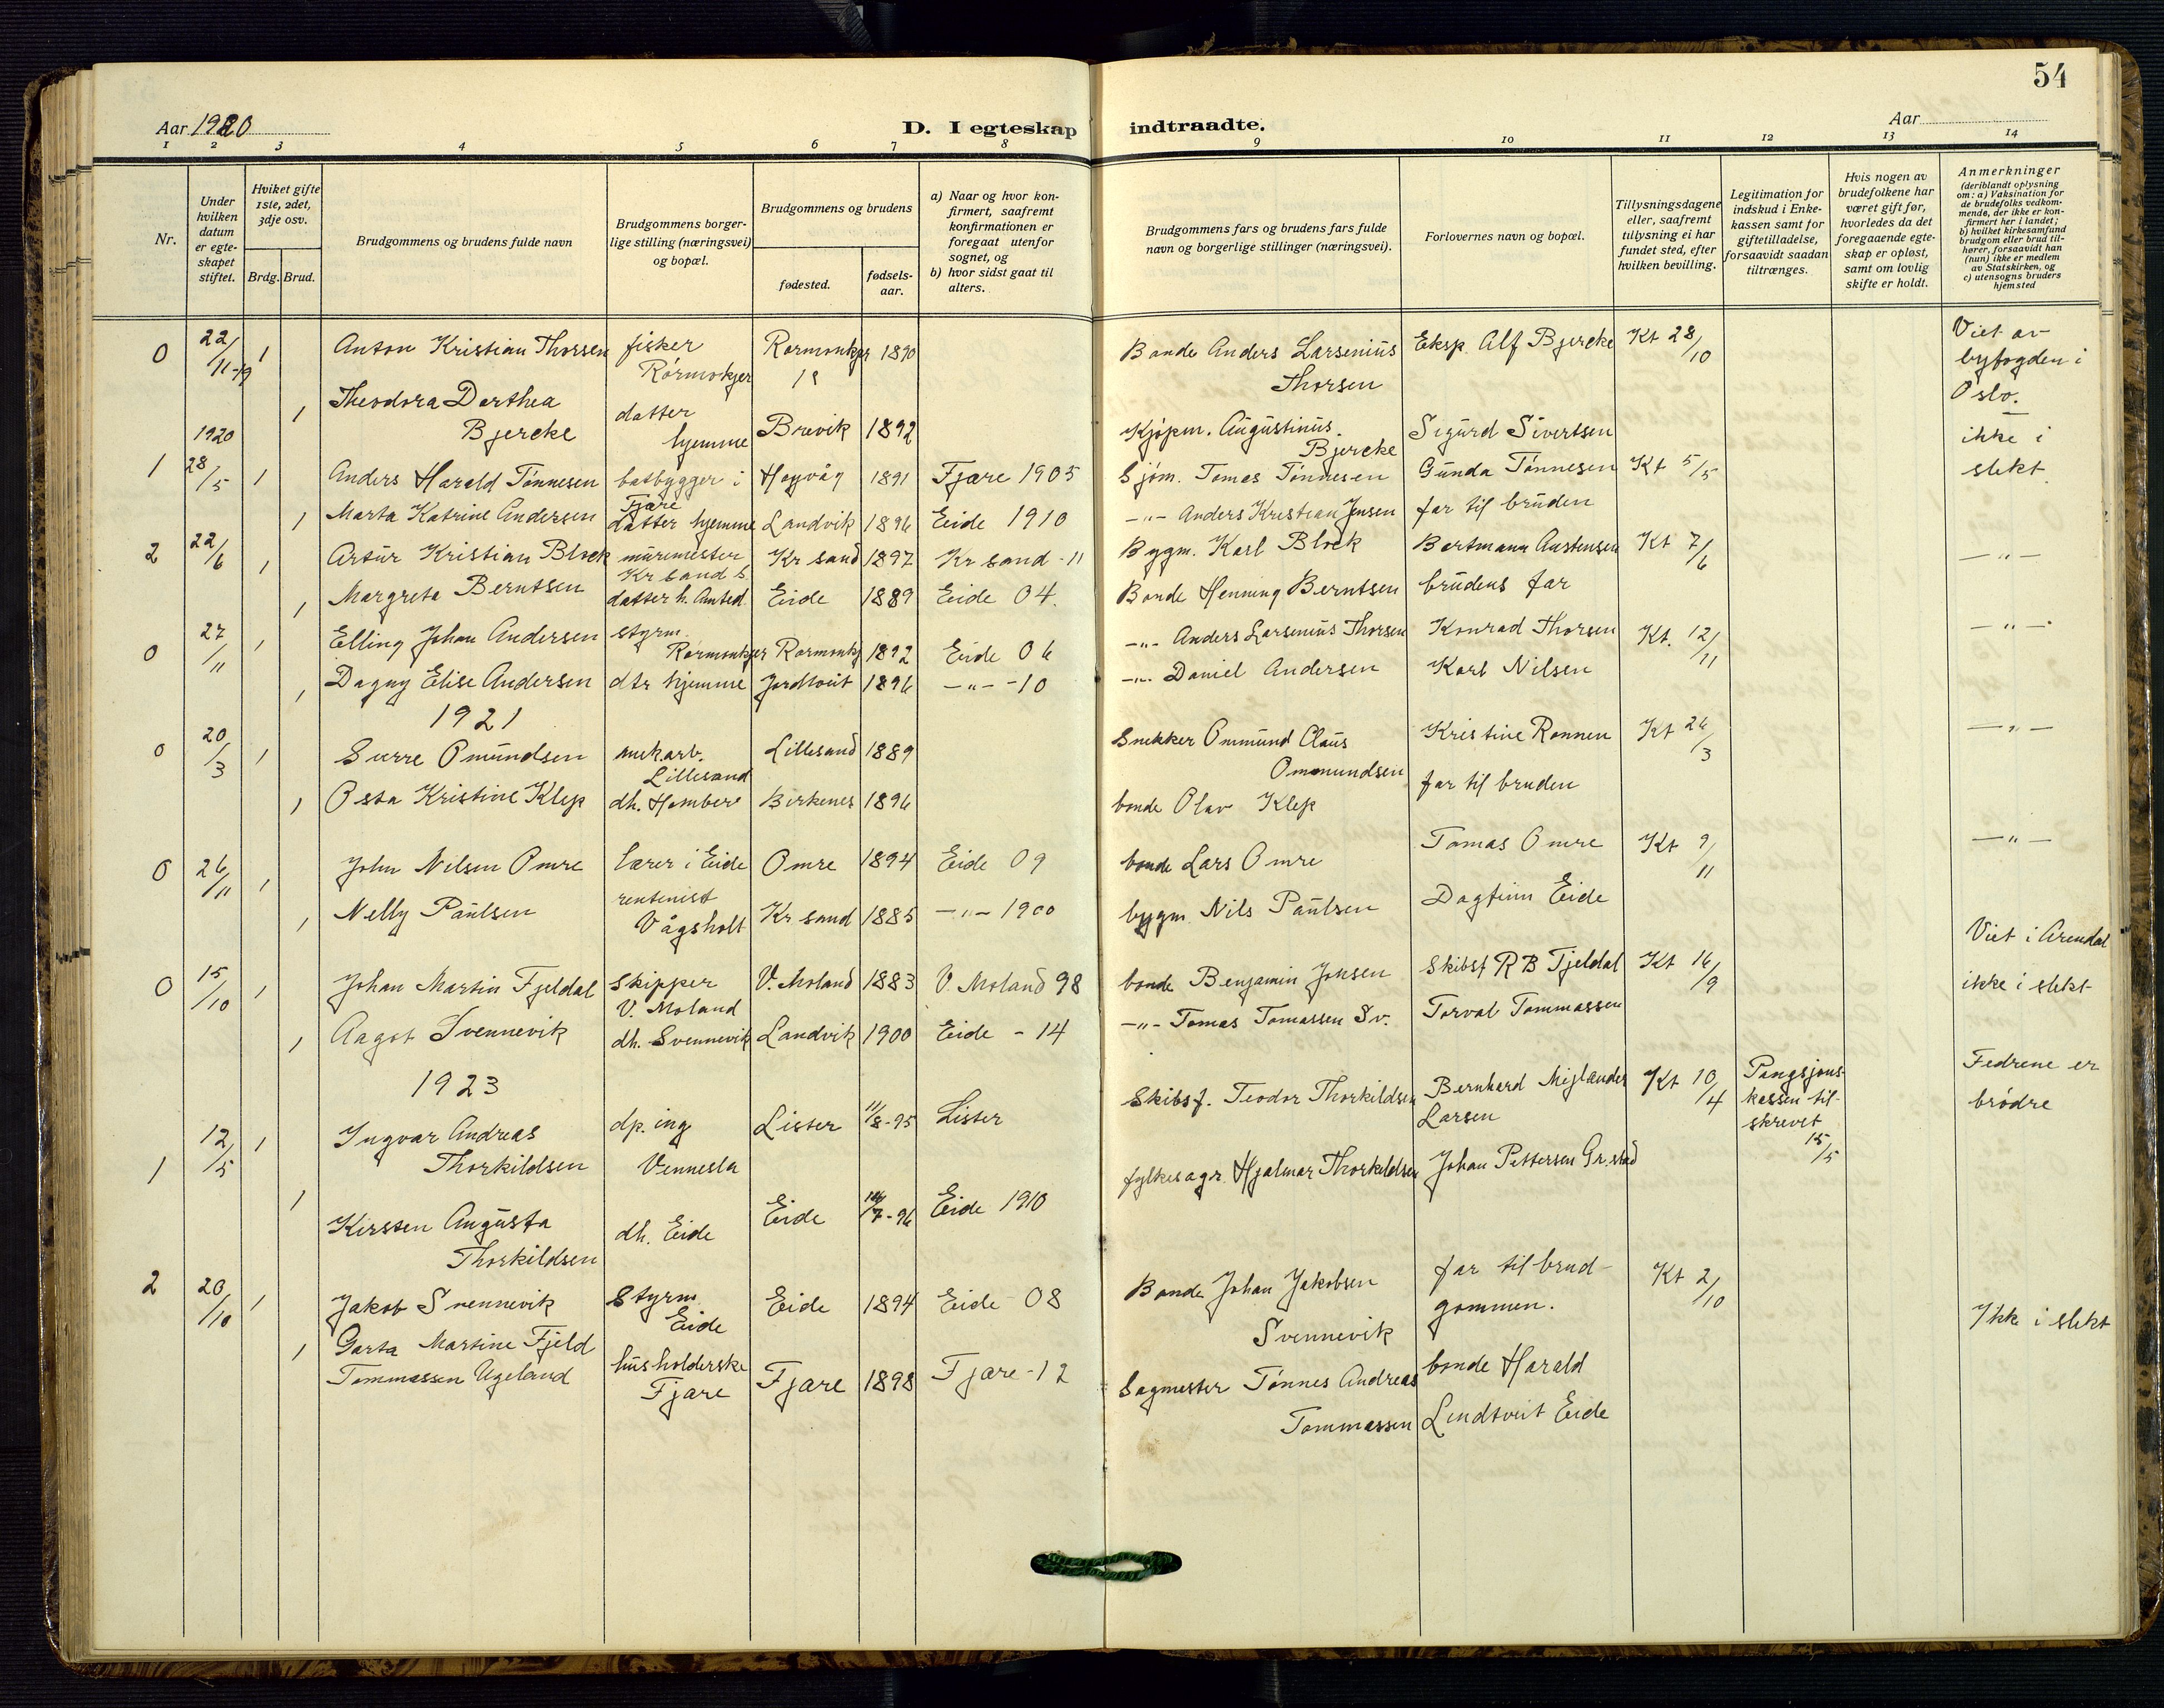 54
Aar 1920
D. I egteskap indtraadte.
Aar
1 2 3 4 5 6 7 8 9 10 11 12 13 14
Nr.
Under hvilken datum er egte-skapet stiftet.
Hviket gifte 1ste, 2det, 3dje osv.
Brdg. Brud.
Brudgommens og brudens fulde navn
Brudgommens borger-lige stilling (næringsvei) og bopæl.
Brudgommens og brudens
fødested.
fødsels-aar.
a) Naar og hvor kon-firmert, saafremt konfirmationen er foregaat utenfor sognet, og
b) hvor sidst gaat til alters.
Brudgommens fars og brudens fars fulde navn og borgerlige stillinger (næringsvei).
Forlovernes navn og bopæl.
Tillysningsdagene eller, saafremt tillysning ei har fundet sted, efter hvilken bevilling.
Legitimation for indskud i Enke-kassen samt for giftetilladelse, forsaavidt saadan tiltrænges.
Hvis nogen av brudefolkene har været gift før, hvorledes da det foregaaende egte-skap er opløst, samt om lovlig skifte er holdt.
Anmerkninger
(deriblandt oplysning om: a) Vaksination for de brudefolks vedkom-mende, der ikke er kon-firmert her i landet; b) hvilket kirkesamfund brudgom eller brud til-hører, forsaavidt han (hun) ikke er medlem av Statskirken, og c) utensogns bruders hjemsted
0 22/11-19 1 Anton Kristian Thorsen fisker Rørmonkjer 1890 Bonde Anders Larsenius Eksp. Alf Bjercke Kt 28/10 Viet av
Rørmokjer Thorsen byfogden i
1 Theodora Dorthea datter Oslo.
Bjercke hjemme Brevik 1892 Kjøpm. Augustinus Bjercke Sigurd Sivertsen ikke i
1920
1 28/5 1 Anders Harald Tønnesen batbygger i Høyvåg 1891 Fjære 1905 Sjøm. Tomas Tønnesen Gunda Tønnesen Kt 5/5 slekt.
Fjære
1 Marta Katrine Andersen datter hjemme Landvik 1896 Eide 1910 -"- Anders Kristian Jensen far til bruden
2 22/6 1 Artur Kristian Block muremester Kr sand 1897 Kr sand - 11 Bygm. Karl Block Bertmann Austensen Kt 7/6 -"-
Kr sand S.
1 Margrete Berntsen datter h. Eide 1889 Eide 04. Bonde Henning Berntsen brudens far
0 27/11 1 Elling Johan Andersen styrm. -"- Anders Larsenius Thorsen Konrad Thorsen Kt. 12/11 -"-
Rørmonkjer Rørmonkj 1892 Eide 06
1 Dagny Elise Andersen dtr hjemme Jordtveit 1896 -"- -10 -"- Daniel Andersen Karl Nilsen
1921
0 20/3 1 Sverre Omundsen mek.arb. Lillesand 1889 Snekker Ommund Claus Kristine Ronnen Kt 26/3 -"-
Lillesand Ommundsen
1 Osta Kristine Klep dh. Birkenes 1896 bonde Olav Klep far til bruden
0 26/11 1 John Nilsen Omre lærer i Eide Omre 1894 Eide 09 bonde Lars Omre Tomas Omre Kt 9/11 -"-
rentenist
1 Nelly Paulsen Vågsholt Kr sand 1885 -"- 1900 bygm. Nils Paulsen Dagfinn Eide
Viet i Arendal
0 15/10 1 Johan Martin Fjeldal Skipper V. Moland 1883 V. Moland 98 bonde Benjamin Jonsen Skibsf R B Fjeldal Kt 16/9 ikke i slekt
V. Moland
1 Aagot Svennevik dh. Svennevik Landvik 1900 Eide - 14 -"- Tomas Tomassen Sv. Torval Tommassen
1923
1 12/5 1 Ingvar Andreas dp. ing Lister 11/8-95 Lister Skibsf. Teodor Thorkildsen Bernhard Miglander Kt 10/4 Pangsjons- Fedrene er
Thorkildsen Vennesla Larsen kassen til- brödre
skrevet
15/5
1 Kirsten Augusta dh. Eide Eide 7-96 Eide 1910 fylkesagr. Hjalmar Thorkildsen Johan Pettersen Gr.stad
Thorkildsen
2 20/10 1 Jakob Svennevik Styrm. Eide 1894 Eide 08 Bonde Johan Jakobsen far til brud- Kt 2/10 Ikke i slekt
Eide Svennevik gommen.
1 Garta Martine Fjeld husholderske
Tommassen Ugeland Fjære Fjære 1898 Fjære - 12 Sagmester Tønnes Andreas bonde Harald
Tommassen Lindtveit Eide